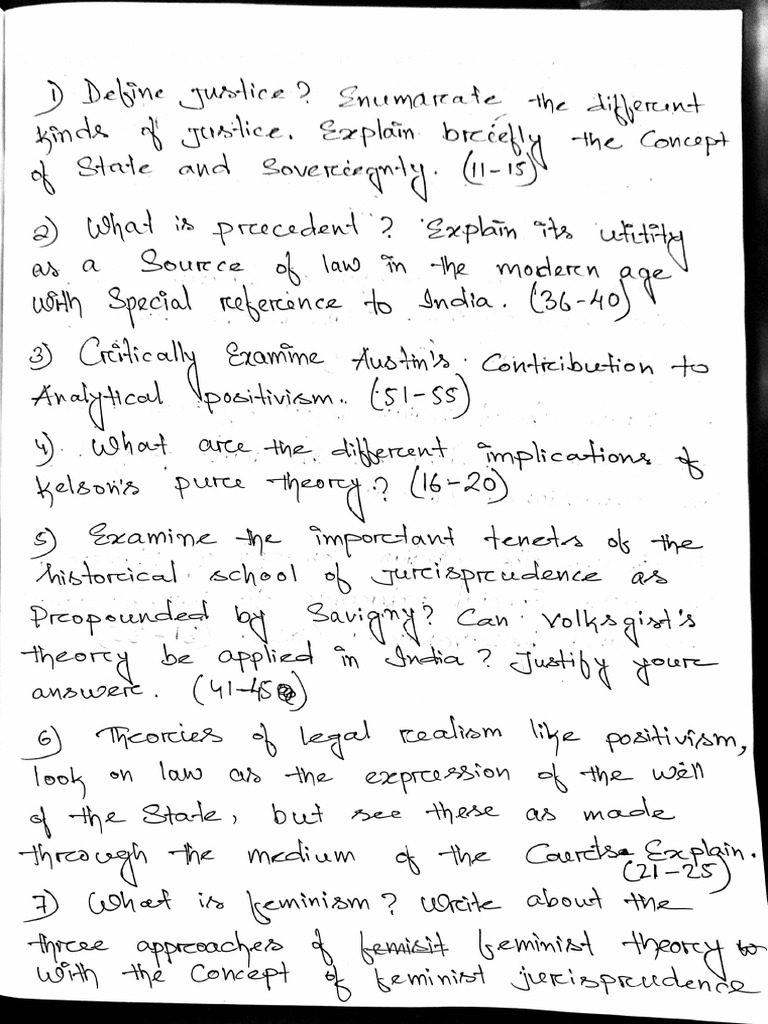 1) Define justice? Enumarcate the different
kinds of justice. Explain brciefly the Concept
of State and Soverciegnty. (11-15)
2) What is prcecedent? Explain its utitity
as a Sourcce of law in the moderen age
with Special refercence to India. (36-40)
3) Crcitically Examine Austin's Contrcibution to
Analytical positivism. (51-55)
4) What arce the different implications of
Kelson's purce theorcy? (16-20)
5) Examine the imporctant tenets of the
historcical school of Jurcisprcudence as
Prcopounded by Savigny? Can volksgist's
theorcy be applied in India? Justify yourc
answerc. (41-45)
6) Theorcies of legal rcealism like positivism,
look on law as the exprcession of the will
of the State, but see these as made
thrcough the medium of the Courcts Explain.
(21-25)
7) What is feminism? Write about the
thrcee apprcoaches of feminist theorcy
with the Concept of feminist jurcisprcudence